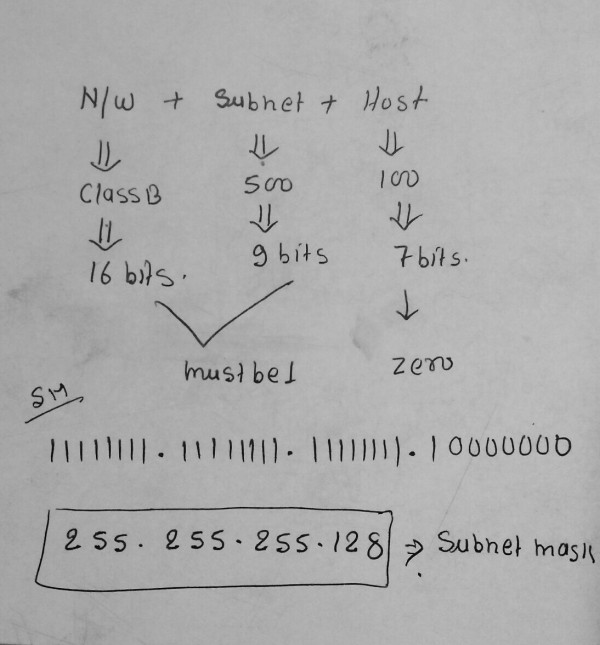 N/W + Subnet + Host
⇓ ⇓ ⇓
Class B 500 100
⇓ ⇓ ⇓
16 bits. 9 bits 7 bits.
↓
must be 1 zero
SM
11111111 . 11111111 . 11111111 . 10000000
255. 255. 255. 128 ⇒ Subnet mask